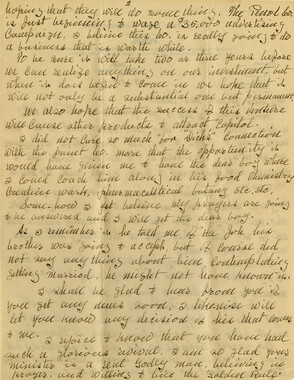 2
hoping that they will do some thing. The Pebol Co.
is just beginning to wage a $35,000 advertising
Campaign. I believe this Co. is really going to do
a business that is worth while.
To be sure it will take two or three years before
we can realize anything on our investment, but
when it does begin to come in we hope that it
will not only be a substantial one but permanent.
We also hope that the success of this venture
will cause other products to attract Capital.
I did not care so much for Dick's connection
with the plant any more than the opportunity it
would have given me to have the dear boy where
I could coach him along in his food Chemistry,
Creative work, pharmaceutical baking etc. etc.
Some-how I yet believe my prayers are going
to be answered and I will get the dear boy.
As I remember it he told me of the job his
brother was going to accept, but of course did
not say anything about him contemplating
getting married. He might not have known it.
I shall be glad to hear from you if
you get any news good, I likewise will
let you know any decision of his that comes
to me.
I rejoice to know that you have had
such a glorious revival. I am so glad your
minister is a real Godly man, believing in
prayer, and willing to live the Golden Rule.